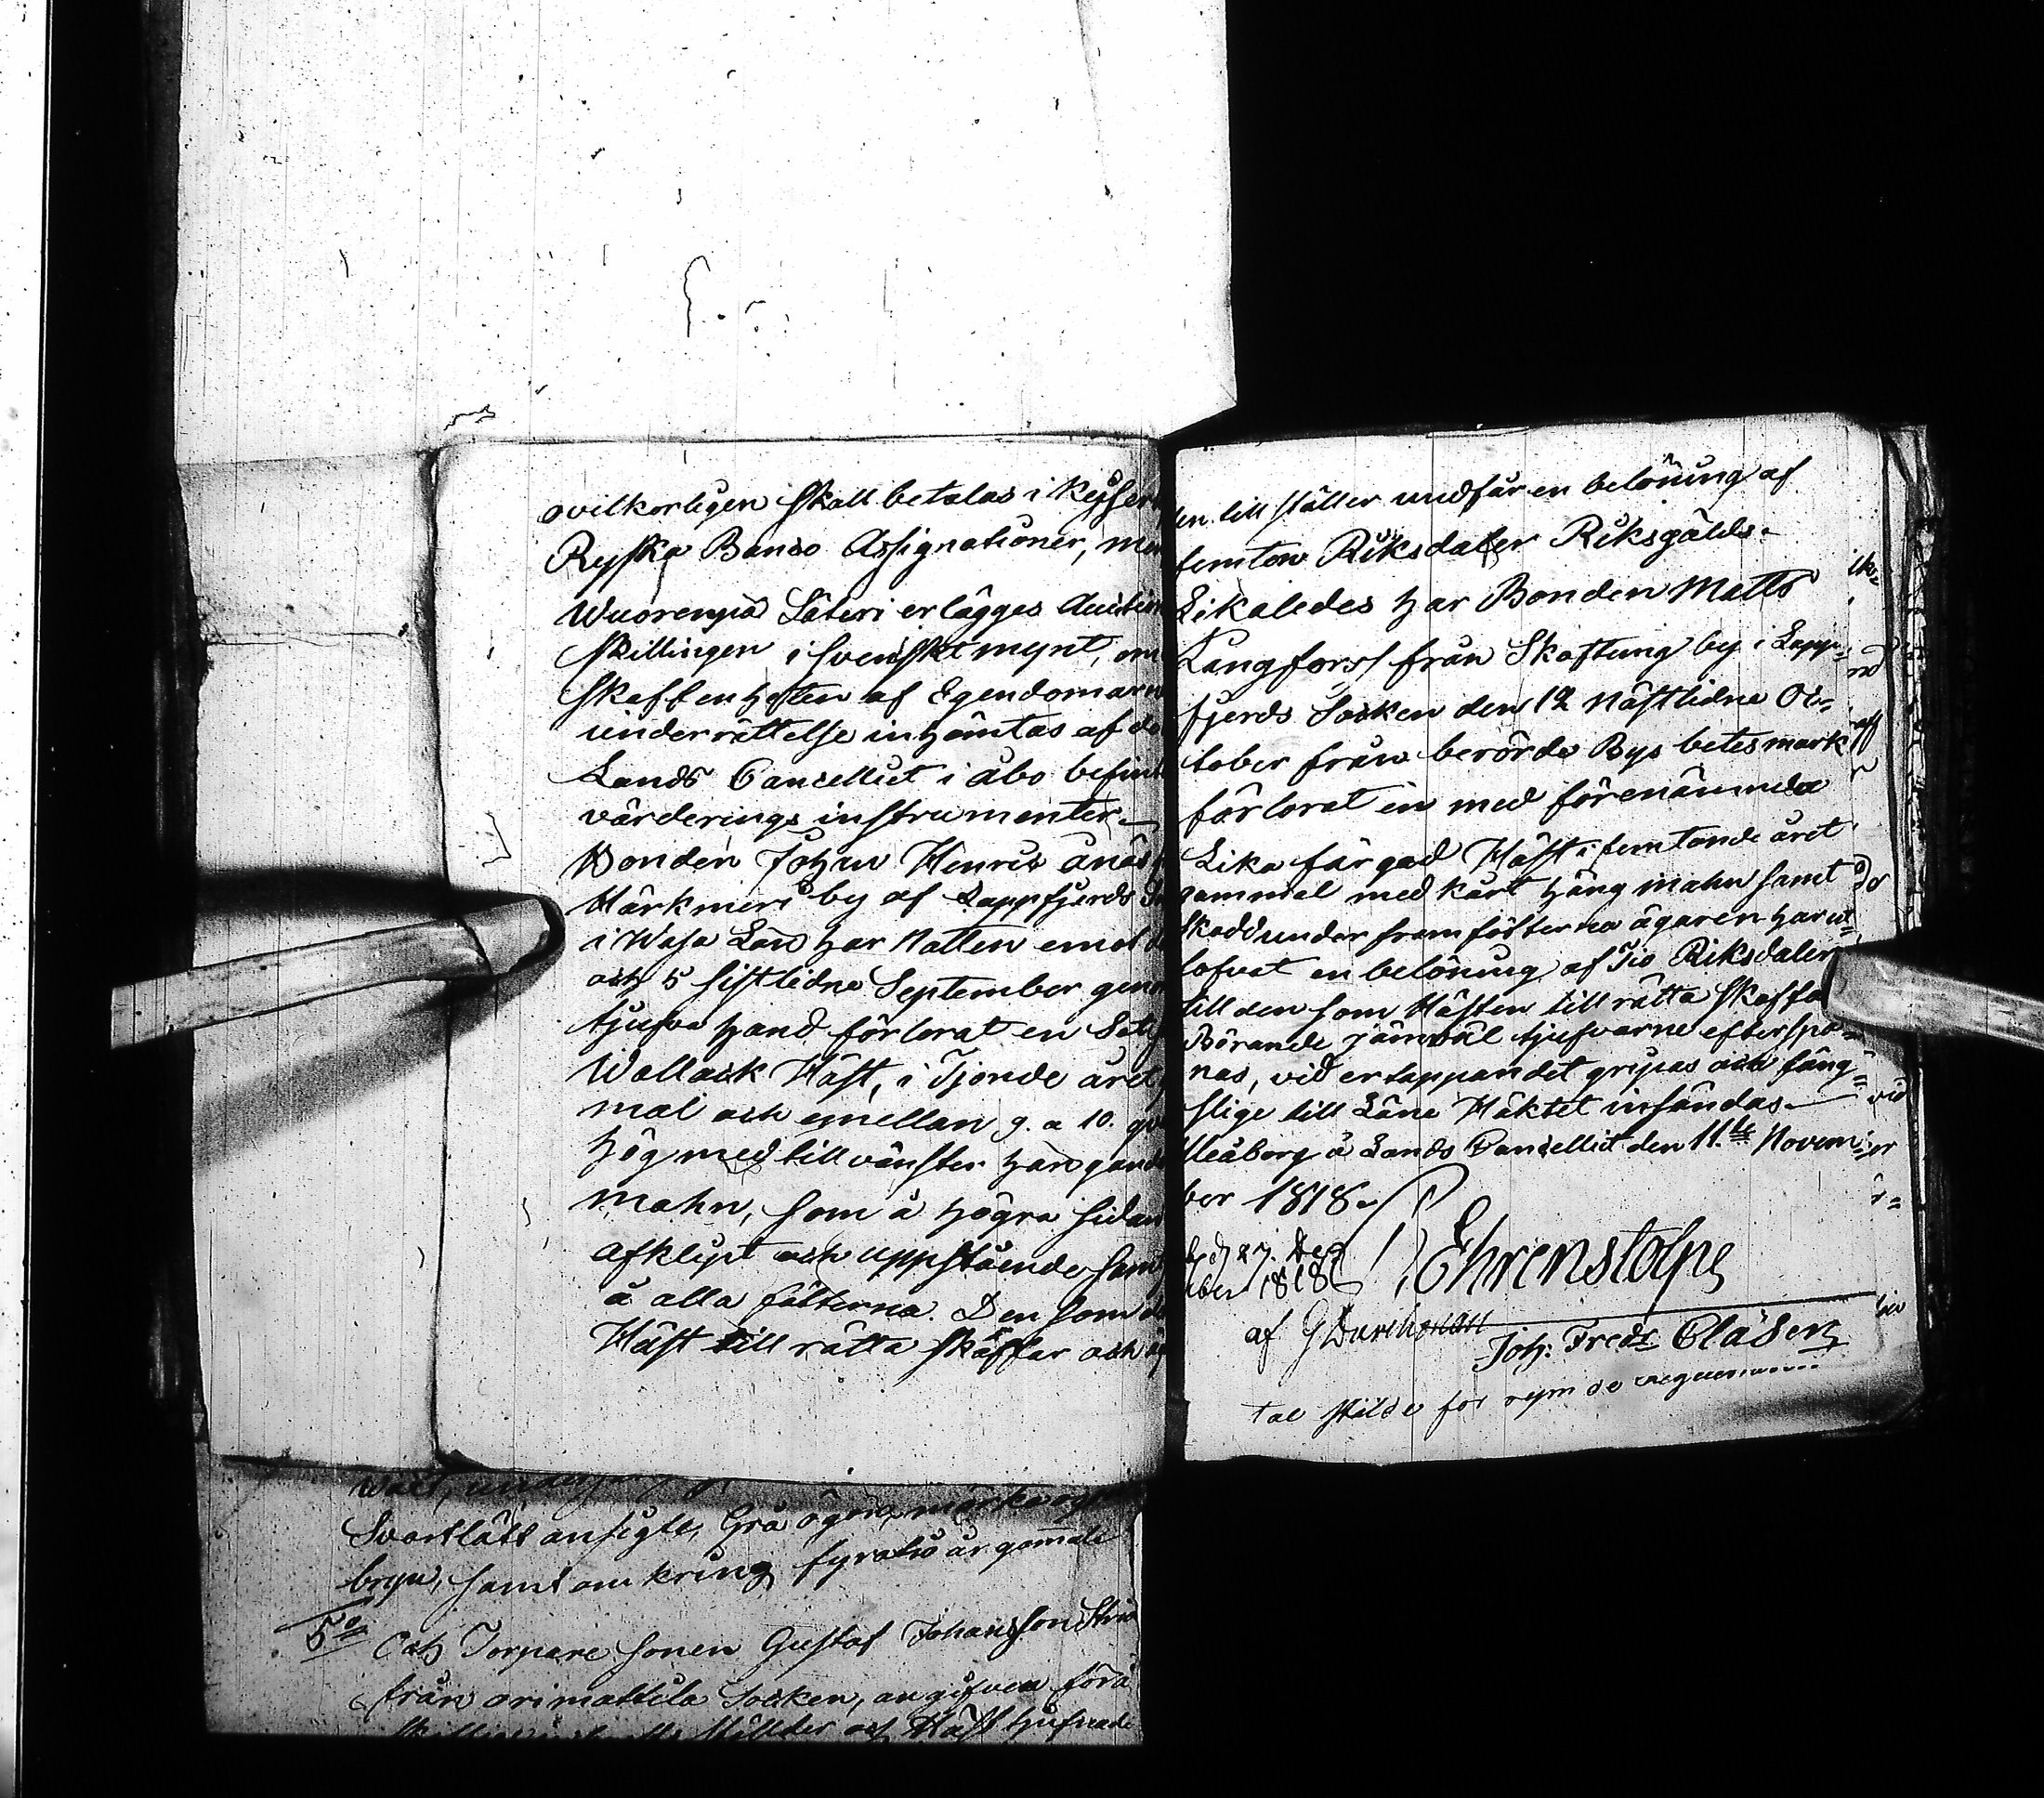 ovilkorligen skall betalas i Keyser
Ryska Banco Assignationer, men
Wuorenpää Säteri erlägges Auction
skillingen i svenskt mynt, om
skaffenheten af Egendomarne
underrättelse inhämtas af de
Lands Cancelliet i åbo befint
värderings instrumenter.
Bonden Johan Henric anäs
Härkmeri by af Lappfjerds So
i Wasa Län har Natten emot d
och 5 sistledne September geno
tjufva hand förlorat en
Wallack Häst, i Tjonde året
mal och emellan 9. a 10. qv
hög med till vänster hängande
mahn, som å högra sidan
afklipt och uppstående samt
å alla fötterna. Den som de
Häst till rätta skaffar och
den tillställer undfår en belöning af
femton Riksdaler Riksgälds.
Likaledes har Bonden Matts
Långforss från Skaftung by i Lapp-
fjerds Socken den 12 Nästlidne Oc-
tober från berörde Bys betesmark
förlorat en med förenämnda
Lika färgad Häst i femtonde året
gammal med kårt häng mahn samt
skodd under framfötterna ägaren har ut-
lofvat en belöning af Tio Riksdaler
till den som Hästen till rätta skaffa
Börande jämväl tjufvarne efterspa-
nas, vid ertappandet gripas och fäng-
slige till Läne Häktet insändas.
Uleåborg å Lands Cancelliet den 11.te Novem-
ber 1818.
27. Dec
1818
Ehrenstolpe
af G
Joh: Fredr Clasen
Svartlätt ansigte, Grå ögon, mörka ögon
bryn, samt omkring fyratio år gamal
5o
Och Torpare sonen Gustaf Johansson
från orimattila Socken, angifven för
och Häst tjufnad